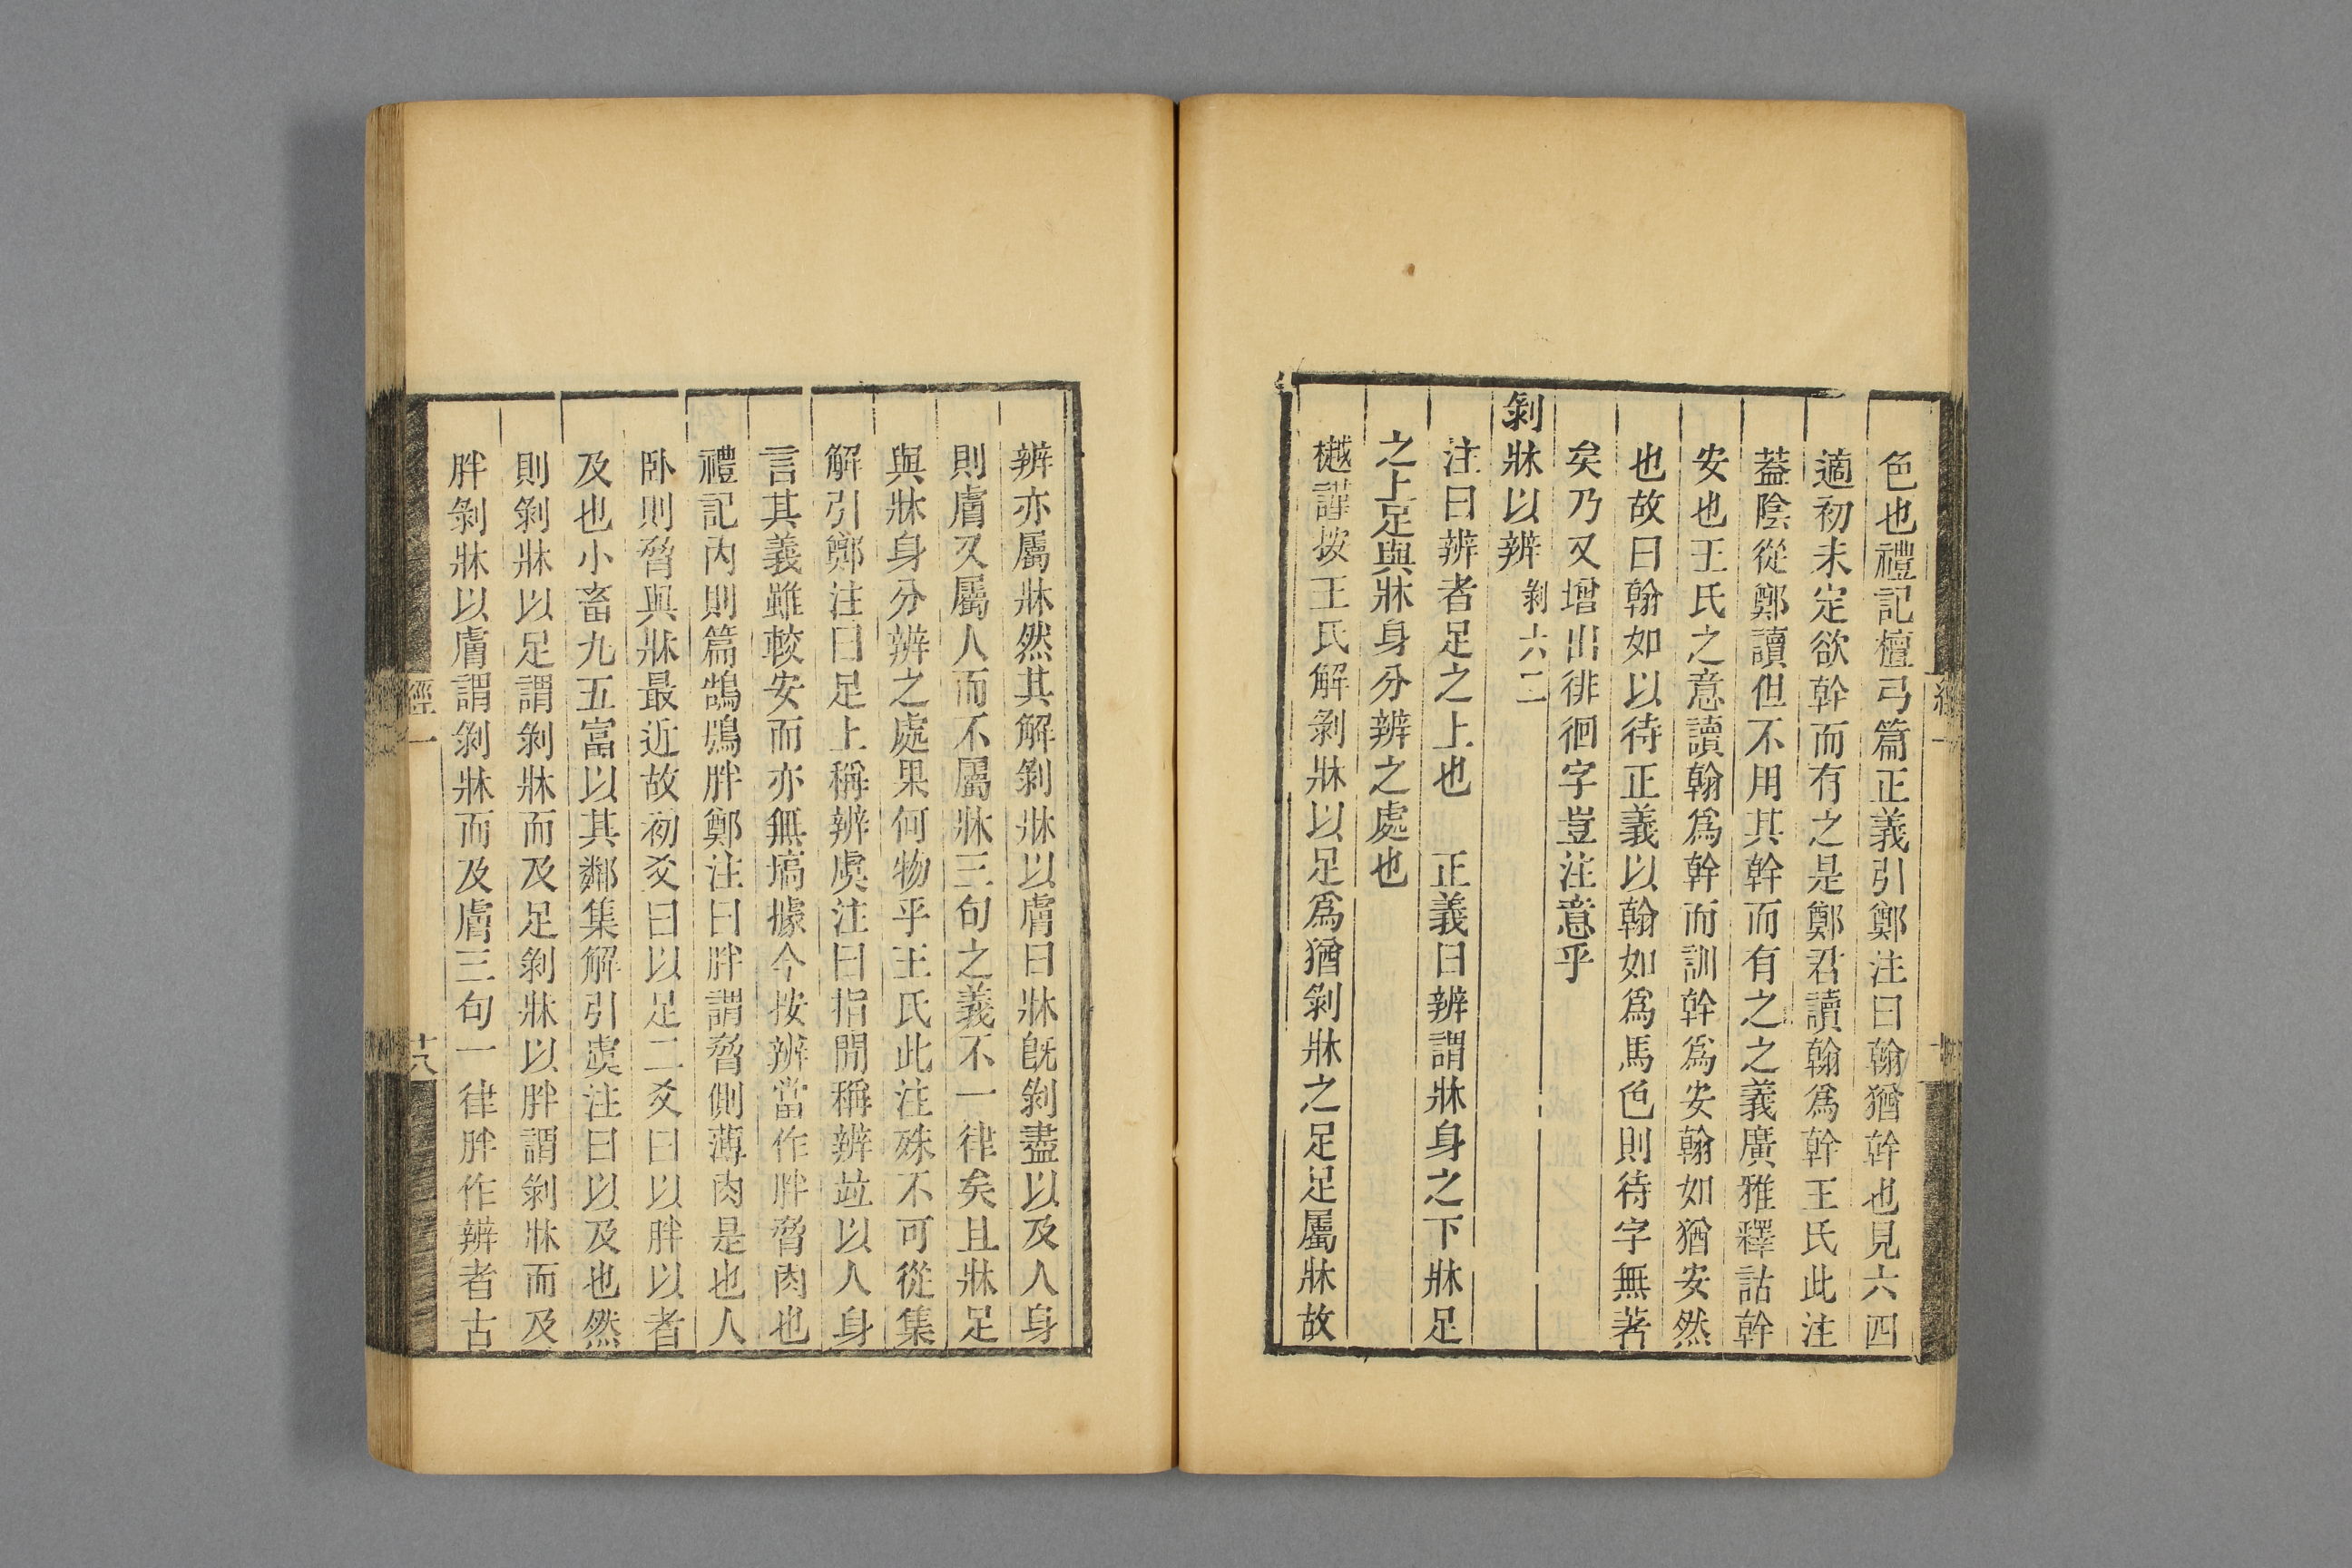 色也禮記檀弓篇正義引鄭注曰翰猶幹也見六四
適初未定欲幹而有之是鄭君讀翰爲幹王氏此注
葢陰從鄭讀但不用其幹而有之之義廣雅釋詁幹
安也王氏之意讀翰爲幹而訓幹爲安翰如猶安然
也故曰翰如以待正義以翰如爲馬色則待字無著
矣乃又增出徘徊字豈注意乎
剝牀以辨剝六二
注曰辨者足之上也　正義曰辨謂牀身之下牀足
之上足與牀身分辨之處也
樾謹按王氏解剝牀以足爲猶剝牀之足足屬牀故
辨亦屬牀然其解剝牀以膚曰牀旣剝盡以及人身
則膚又屬人而不屬牀三句之義不一律矣且牀足
與牀身分辨之處果何物乎王氏此注殊不可從集
解引鄭注曰足上稱辨虞注曰指閒稱辨竝以人身
言其義雖較安而亦無塙據今按辨當作胖脅肉也
禮記內則篇鵠鴞胖鄭注曰胖謂脅側薄肉是也人
卧則脅與牀最近故初爻曰以足二爻曰以胖以者
及也小畜九五富以其鄰集解引虞注曰以及也然
則剝牀以足謂剝牀而及足剝牀以胖謂剝牀而及
胖剝牀以膚謂剝牀而及膚三句一律胖作辨者古
經一
十八